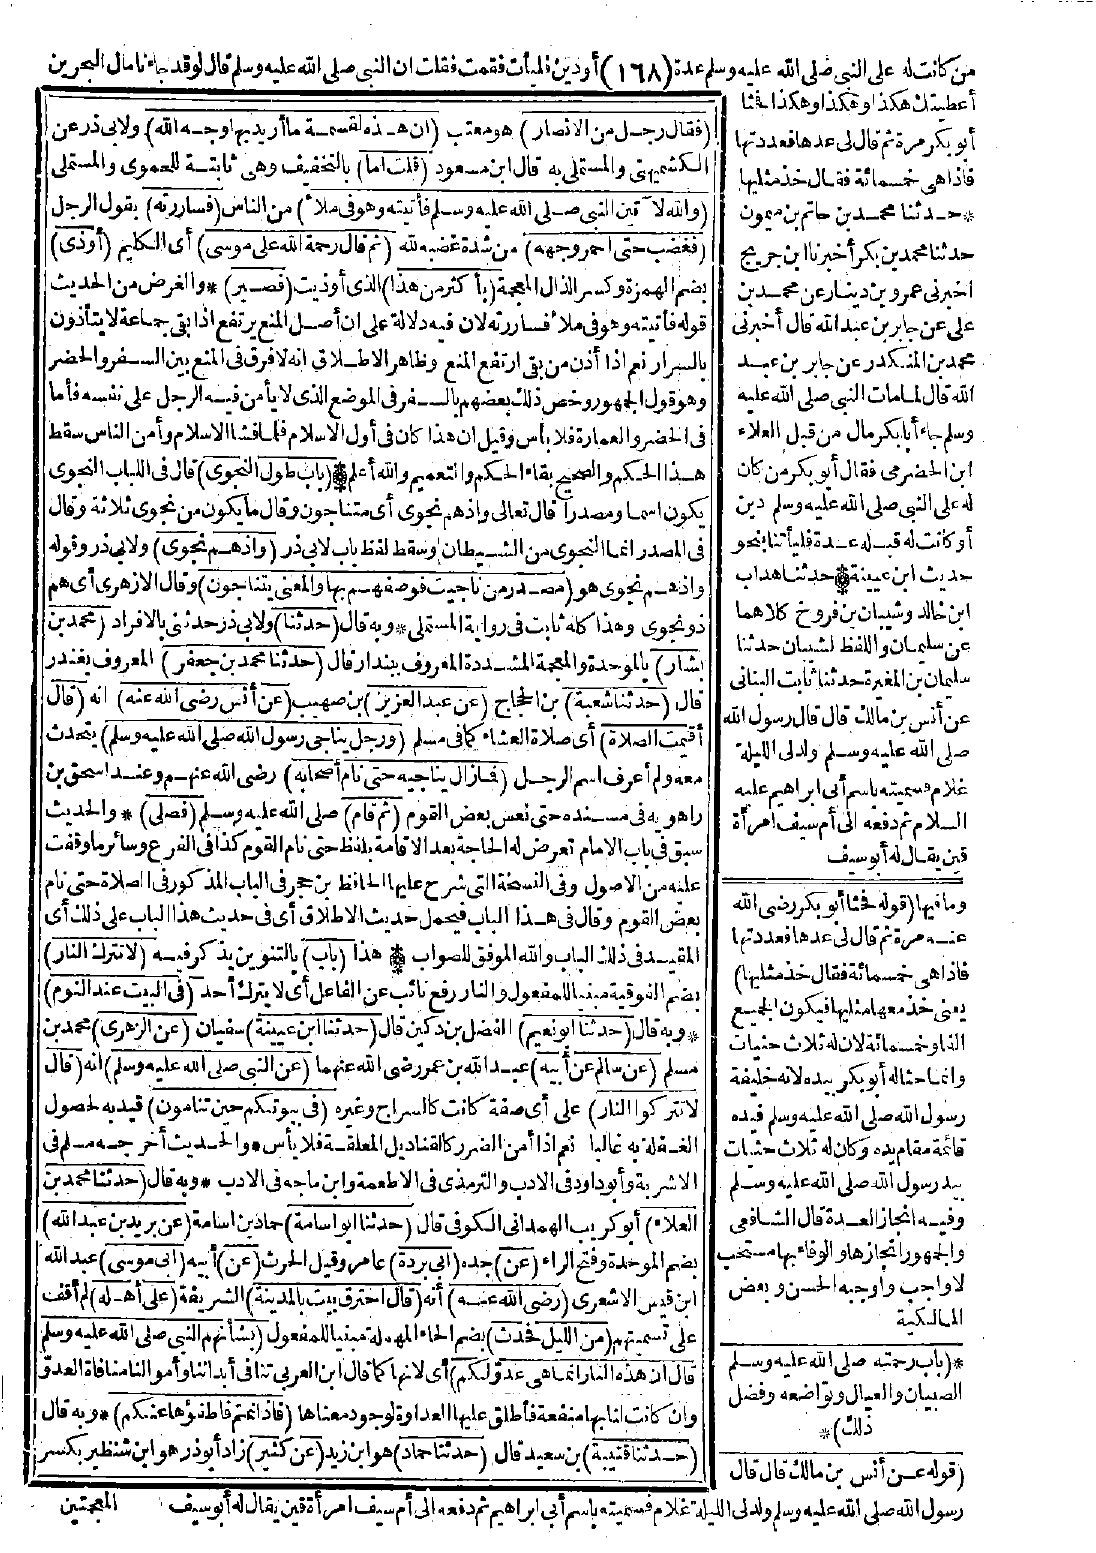 من كانت له على النبي صلى الله عليه وسلم عدة (١٦٨) أو دين فليأت فقمت فقلت ان النبي صلى الله عليه وسلم قال لو قد جاءنا مال البحرين
أعطيتك هكذا وهكذا وهكذا فحثا
أبو بكر مرة ثم قال لى عدها فعددتها
فاذا هى خمسمائة فقال خذ مثليها
*حدثنا محمد بن حاتم بن ميمون
حدثنا محمد بن بكر أخبرنا ابن جريج
اخبرنى عمرو بن دينار عن محمد بن
على عن جابر بن عبد الله قال أخبرنى
محمد بن المنكدر عن جابر بن عبد
الله قال لما مات النبى صلى الله عليه
وسلم جاء أبا بكر مال من قبل العلاء
ابن الحضرمى فقال أبو بكر من كان
له على النبى صلى الله عليه وسلم دين
أو كانت له قبله عدة فليأتنا بنحو
حديث ابن عيينة * حدثنا هداب
ابن خالد وشيبان بن فروخ كلاهما
عن سليمان واللفظ لشيبان حدثنا
سليمان بن المغيرة حدثنا ثابت البنانى
عن أنس بن مالك قال قال رسول الله
صلى الله عليه وسلم ولد لى الليلة
غلام فسميته باسم أبى ابراهيم عليه
السلام ثم دفعه الى أم سيف امرأة
قين يقال له أبو سيف
وما فيها (قوله فحثا أبو بكر رضى الله
عنه مرة ثم قال لى عدها فعددتها
فاذا هى خمسمائة فقال خذ مثليها)
يعنى خذ معها مثليها فيكون الجميع
ألفا وخمسمائة لان له ثلاث حثيات
وانما حثاله أبو بكر بيده لانه خليفة
رسول الله صلى الله عليه وسلم فيده
قائمة مقام يده وكان له ثلاث حثيات
بيد رسول الله صلى الله عليه وسلم
وفيه انجاز العدة قال الشافعى
والجمهور انجازها والوفاء بها مستحب
لا واجب وأوجبه الحسن وبعض
المالكية
*(باب رحمته صلى الله عليه وسلم
الصبيان والعيال وتواضعه وفضل
ذلك)*
(قوله عن أنس بن مالك قال قال
رسول الله صلى الله عليه وسلم ولد لى الليلة غلام فسميته باسم أبى ابراهيم ثم دفعه الى أم سيف امرأة قين يقال له أبو سيف
(فقال رجل من الانصار) هو معتب (ان هذه لقسمة ما أريد بها وجه الله) ولابى ذر عن
الكشميهنى والمستملى به قال ابن مسعود (قلت اما) بالتخفيف وهى ثابتة للحموى والمستملى
(والله لا تين النبى صلى الله عليه وسلم فأتيته وهو فى ملأ) من الناس (فساررته) بقول الرجل
(فغضب حتى احمر وجهه) من شدة غضبه لله (ثم قال رحمة الله على موسى) أى الكليم (أوذى)
بضم الهمزة وكسر الذال المعجمة (بأكثر من هذا) الذى أوذيت (فصبر) *والغرض من الحديث
قوله فأتيته وهو فى ملأ فساررته لان فيه دلالة على ان أصل المنع يرتفع اذا بقى جماعة لا يتأذون
بالسرار نعم اذا أذن من بقى ارتفع المنع وظاهر الاطلاق انه لا فرق فى المنع بين السفر والحضر
وهو قول الجمهور وخص ذلك بعضهم بالسفر فى الموضع الذى لا يأمن فيه الرجل على نفسه فأما
فى الحضر والعمارة فلا بأس وقيل ان هذا كان فى أول الاسلام فلما فشا الاسلام وأمن الناس سقط
هذا الحكم والصحيح بقاء الحكم والتعميم والله أعلم * (باب طول النجوى) قال فى اللباب النجوى
يكون اسما ومصدرا قال تعالى واذ هم نجوى أى متناجون وقال ما يكون من نجوى ثلاثة وقال
فى المصدر انما النجوى من الشيطان وسقط لفظ باب لابى ذر (واذ هم نجوى) ولابى ذر وقوله
واذ هم نجوى هو (مصدر من ناجيت فوصفهم بها والمعنى يتناجون) وقال الازهرى أى هم
ذو نجوى وهذا كله ثابت فى رواية المستملى *وبه قال (حدثنا) ولابى ذر حدثنى بالافراد (محمد بن
بشار) بالموحدة والمعجمة المشددة المعروف ببندار قال (حدثنا محمد بن جعفر) المعروف بغندر
قال (حدثنا شعبة) بن الحجاج (عن عبد العزيز) بن صهيب (عن أنس رضى الله عنه) انه (قال
أقيمت الصلاة) أى صلاة العشاء كما فى مسلم (ورجل يناجى رسول الله صلى الله عليه وسلم) يتحدث
معه ولم أعرف اسم الرجل (فما زال يناجيه حتى نام أصحابه) رضى الله عنهم وعند اسحق بن
راهويه فى مسنده حتى نعس بعض القوم (ثم قام) صلى الله عليه وسلم (فصلى) *والحديث
سبق فى باب الامام تعرض له الحاجة بعد الاقامة بلفظ حتى نام القوم كذا فى الفرع وسائر ما وقفت
عليه من الاصول وفى النسخة التى شرح عليها الحافظ بن حجر فى الباب المذكور فى الصلاة حتى نام
بعض القوم وقال فى هذا الباب فيحمل حديث الاطلاق أى فى حديث هذا الباب على ذلك أى
المقيد فى ذلك الباب والله الموفق للصواب * هذا (باب) بالتنوين يذكر فيه (لا تترك النار)
بضم الفوقية مبنيا للمفعول والنار رفع نائب عن الفاعل أى لا يترك أحد (فى البيت عند النوم)
*وبه قال (حدثنا ابو نعيم) الفضل بن دكين قال (حدثنا ابن عيينة) سفيان (عن الزهرى) محمد بن
مسلم (عن سالم عن أبيه) عبد الله بن عمر رضى الله عنهما (عن النبى صلى الله عليه وسلم) انه (قال
لا تتركوا النار) على أى صفة كانت كالسراج وغيره (فى بيوتكم حين تنامون) قيد به لحصول
الغفلة به غالبا نعم اذا أمن الضرر كالقناديل المعلقة فلا بأس *والحديث أخرجه مسلم فى
الاشربة وأبو داود فى الادب والترمذى فى الاطعمة وابن ماجه فى الادب *وبه قال (حدثنا محمد بن
العلاء) أبو كريب الهمدانى الكوفى قال (حدثنا ابو اسامة) حماد بن اسامة (عن بريد بن عبد الله)
بضم الموحدة وفتح الراء (عن) جده (ابى بردة) عامر وقيل الحرث (عن) أبيه (ابى موسى) عبد الله
ابن قيس الاشعرى (رضى الله عنه) أنه (قال احترق بيت بالمدينة) الشريفة (على أهله) لم أقف
على تسميتهم (من الليل فحدث) بضم الحاء المهملة مبنيا للمفعول (بشأنهم النبى صلى الله عليه وسلم
قال ان هذه النار انما هى عدو لكم) أى لانها كما قال ابن العربى تنافى أبداننا وأموالنا منافاة العدو
وان كانت لنا بها منفعة فأطلق عليها العداوة لوجود معناها (فاذا نمتم فاطفؤها عنكم) *وبه قال
(حدثنا قتيبة) بن سعيد قال (حدثنا حماد) هو ابن زيد (عن كثير) زاد أبو ذر هو ابن شنظير بكسر
المعجمتين